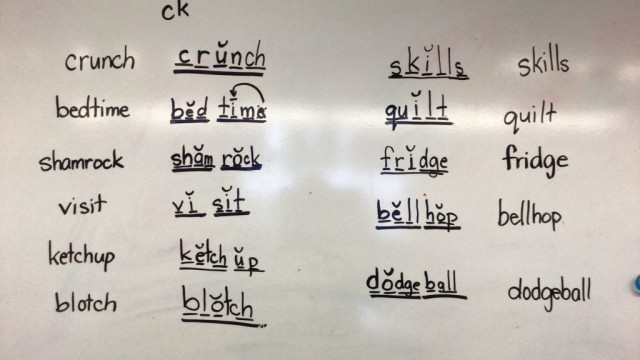 ck
crunch crŭnch skĭlls skills
bedtime bĕd tīme quĭlt quilt
shamrock shăm rŏck frĭdge fridge
visit vĭ sĭt bĕll hŏp bellhop
ketchup kĕtch ŭp dŏdge ball dodgeball
blotch blŏtch